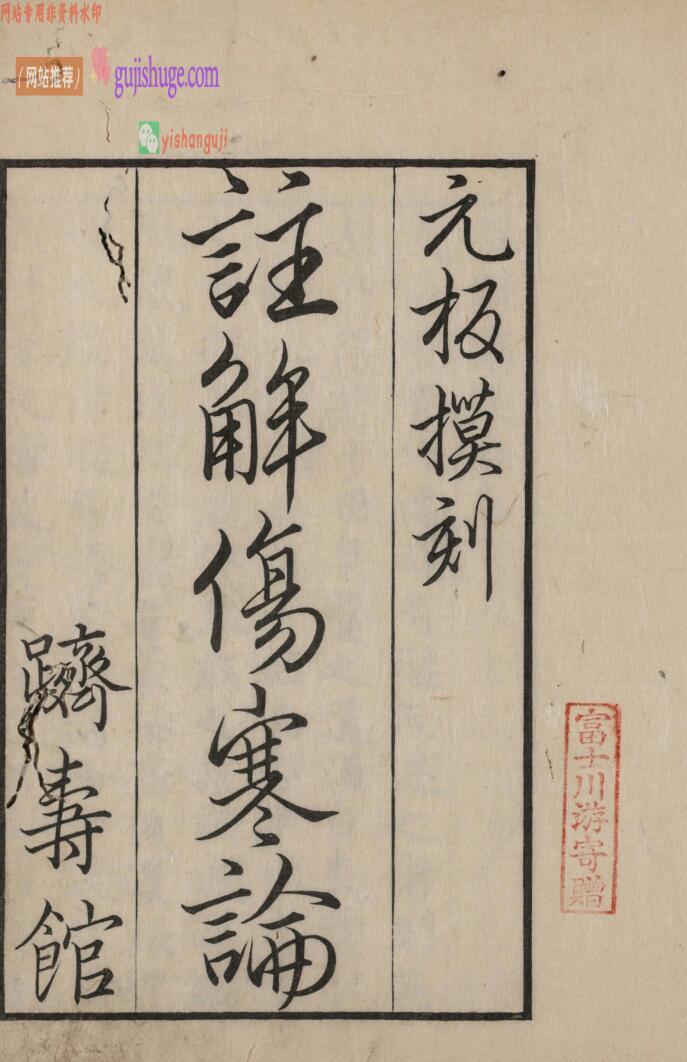 网站专用非资料水印
（网站推荐）
gujishuge.com
yishanguji
元板摸刻
註解傷寒論
躋壽館
富士川游寄贈